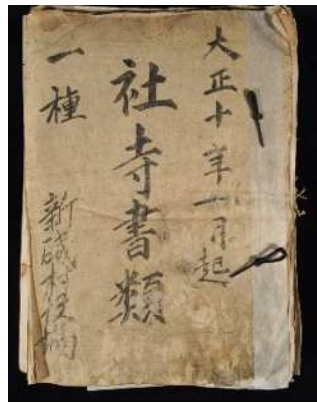 大正十年一月起
社寺書類
一種
新磯村役場